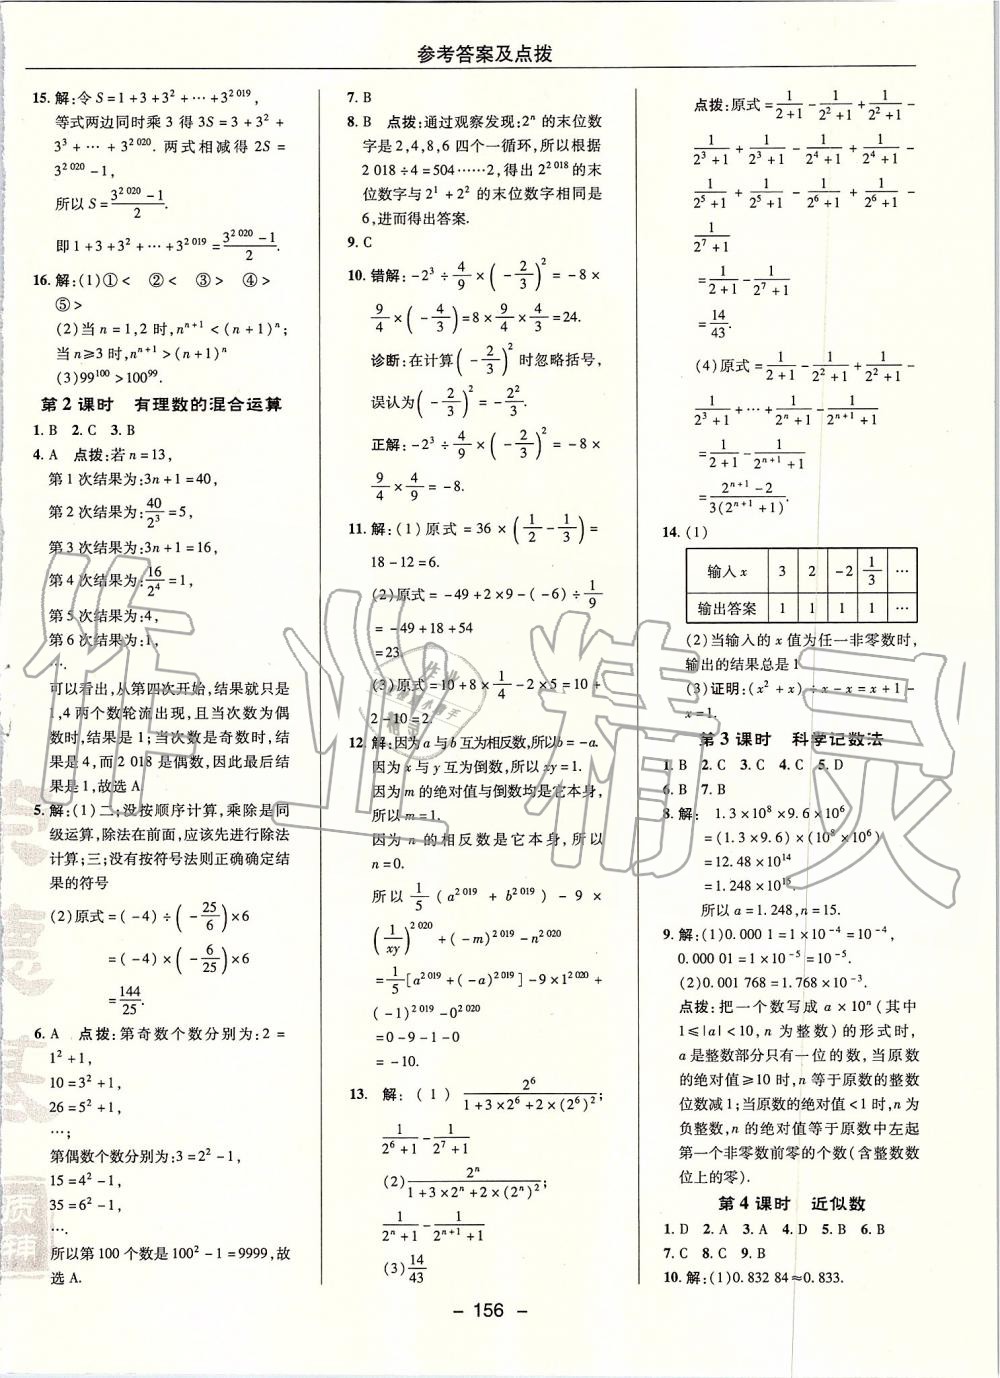 参考答案及点拨
15. 解:令 S=1+3+3²+…+3^{2 019},
等式两边同时乘 3 得 3S=3+3²+
3³+…+3^{2 020}. 两式相减得 2S=
3^{2 020}-1,
所以 S=\frac{3^{2 020}-1}{2}.
即 1+3+3²+…+3^{2 019}=\frac{3^{2 020}-1}{2}.
16. 解:(1)①< ②< ③> ④>
⑤>
(2)当 n=1,2 时,n^{n+1}<(n+1)^n;
当 n≥3 时,n^{n+1}>(n+1)^n
(3)99^{100}>100^{99}.
第 2 课时 有理数的混合运算
1. B 2. C 3. B
4. A 点拨:若 n=13,
第 1 次结果为:3n+1=40,
第 2 次结果为:\frac{40}{2³}=5,
第 3 次结果为:3n+1=16,
第 4 次结果为:\frac{16}{2⁴}=1,
第 5 次结果为:4,
第 6 次结果为:1,
…
可以看出,从第四次开始,结果就只是
1,4 两个数轮流出现,且当次数为偶
数时,结果是 1;当次数是奇数时,结
果是 4,而 2 018 是偶数,因此最后结
果是 1,故选 A
5. 解:(1)二;没按顺序计算,乘除是同
级运算,除法在前面,应该先进行除法
计算;三;没有按符号法则正确确定结
果的符号
(2)原式=(-4)÷(-\frac{25}{6})×6
=(-4)×(-\frac{6}{25})×6
=\frac{144}{25}.
6. A 点拨:第奇数个数分别为:2=
1²+1,
10=3²+1,
26=5²+1,
…;
第偶数个数分别为:3=2²-1,
15=4²-1,
35=6²-1,
….
所以第 100 个数是 100²-1=9999,故
选 A.
7. B
8. B 点拨:通过观察发现:2^n 的末位数
字是 2,4,8,6 四个一循环,所以根据
2 018÷4=504……2,得出 2^{2 018} 的末
位数字与 2¹+2² 的末位数字相同是
6,进而得出答案.
9. C
10. 错解:-2³÷\frac{4}{9}×(-\frac{2}{3})²=-8×
\frac{9}{4}×(-\frac{4}{3})=8×\frac{9}{4}×\frac{4}{3}=24.
诊断:在计算(-\frac{2}{3})²时忽略括号,
误认为(-\frac{2}{3})²=-\frac{2²}{3}.
正解:-2³÷\frac{4}{9}×(-\frac{2}{3})²=-8×
\frac{9}{4}×\frac{4}{9}=-8.
11. 解:(1)原式=36×(\frac{1}{2}-\frac{1}{3})=
18-12=6.
(2)原式=-49+2×9-(-6)÷\frac{1}{9}
=-49+18+54
=23.
(3)原式=10+8×\frac{1}{4}-2×5=10+
2-10=2.
12. 解:因为 a 与 b 互为相反数,所以 b=-a.
因为 x 与 y 互为倒数,所以 xy=1.
因为 m 的绝对值与倒数均是它本身,
所以 m=1.
因为 n 的相反数是它本身,所以
n=0.
所以 \frac{1}{5}(a^{2 019}+b^{2 019})-9×
(\frac{1}{xy})^{2 020}+(-m)^{2 019}-n^{2 020}
=\frac{1}{5}[a^{2 019}+(-a)^{2 019}]-9×1^{2 020}+
(-1)^{2 019}-0^{2 020}
=0-9-1-0
=-10.
13. 解:(1)\frac{2⁶}{1+3×2⁶+2×(2⁶)²};
\frac{1}{2⁶+1}-\frac{1}{2⁷+1}
(2)\frac{2^n}{1+3×2^n+2×(2^n)²};
\frac{1}{2^n+1}-\frac{1}{2^{n+1}+1}
(3)\frac{14}{43}
点拨:原式=\frac{1}{2+1}-\frac{1}{2²+1}+\frac{1}{2²+1}-
\frac{1}{2³+1}+\frac{1}{2³+1}-\frac{1}{2⁴+1}+\frac{1}{2⁴+1}-
\frac{1}{2⁵+1}+\frac{1}{2⁵+1}-\frac{1}{2⁶+1}+\frac{1}{2⁶+1}-
\frac{1}{2⁷+1}
=\frac{1}{2+1}-\frac{1}{2⁷+1}
=\frac{14}{43}.
(4)原式=\frac{1}{2+1}-\frac{1}{2²+1}+\frac{1}{2²+1}-
\frac{1}{2³+1}+…+\frac{1}{2^n+1}-\frac{1}{2^{n+1}+1}
=\frac{1}{2+1}-\frac{1}{2^{n+1}+1}
=\frac{2^{n+1}-2}{3(2^{n+1}+1)}.
14. (1)
输入 x 3 2 -2 \frac{1}{3} …
输出答案 1 1 1 1 …
(2)当输入的 x 值为任一非零数时,
输出的结果总是 1
(3)证明:(x²+x)÷x-x=x+1-
x=1.
第 3 课时 科学记数法
1. B 2. C 3. C 4. C 5. D
6. B 7. B
8. 解: 1.3×10⁸×9.6×10⁶
=(1.3×9.6)×(10⁸×10⁶)
=12.48×10¹⁴
=1.248×10¹⁵.
所以 a=1.248,n=15.
9. 解:(1)0.000 1=1×10⁻⁴=10⁻⁴,
0.000 01=1×10⁻⁵=10⁻⁵.
(2)0.001 768=1.768×10⁻³.
点拨:把一个数写成 a×10^n(其中
1≤|a|<10,n 为整数)的形式时,
a 是整数部分只有一位的数,当原数
的绝对值≥10 时,n 等于原数的整数
位数减 1;当原数的绝对值<1 时,n 为
负整数,n 的绝对值等于原数中左起
第一个非零数前零的个数(含整数数
位上的零).
第 4 课时 近似数
1. D 2. A 3. A 4. D 5. B 6. B
7. C 8. C 9. B
10. 解:(1)0.832 84≈0.833.
- 156 -
作业精灵